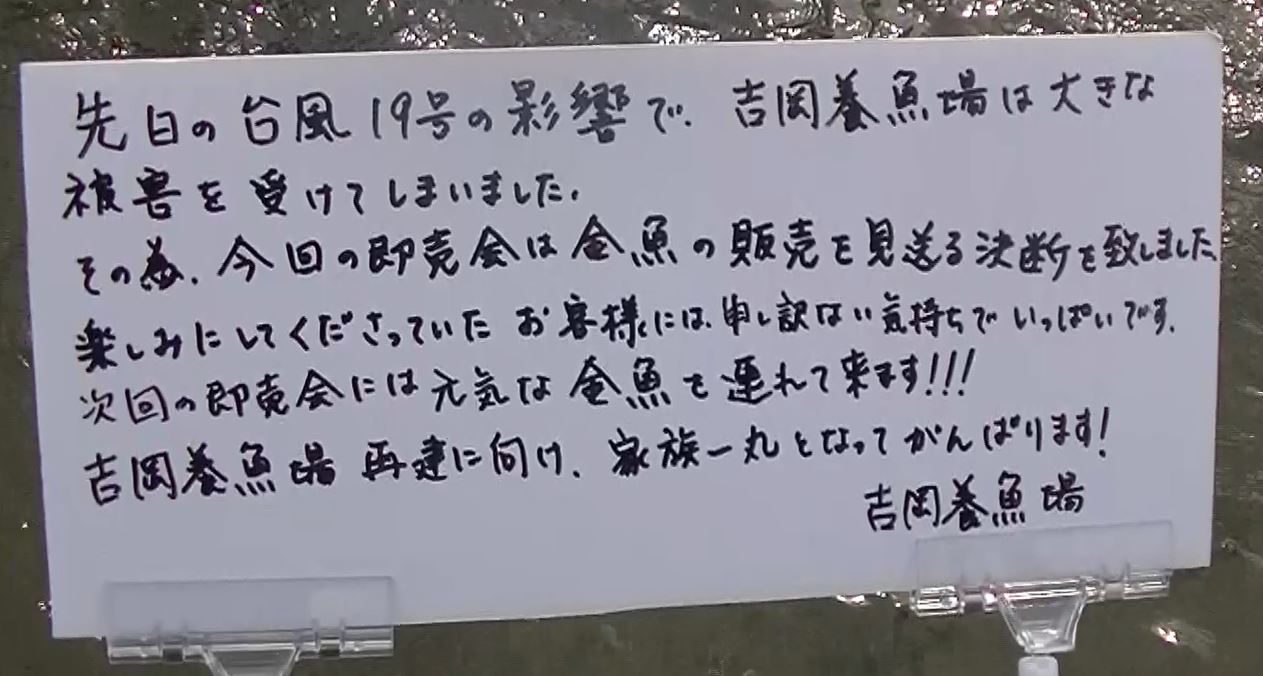 先日の台風19号の影響で、吉岡養魚場は大きな
被害を受けてしまいました。
その為、今回の即売会は金魚の販売を見送る決断を致しました
楽しみにしてくださっていたお客様には、申し訳ない気持ちでいっぱいです。
次回の即売会には元気な金魚を連れて来ます!!!
吉岡養魚場 再建に向け、家族一丸となってがんばります!
吉岡養魚場